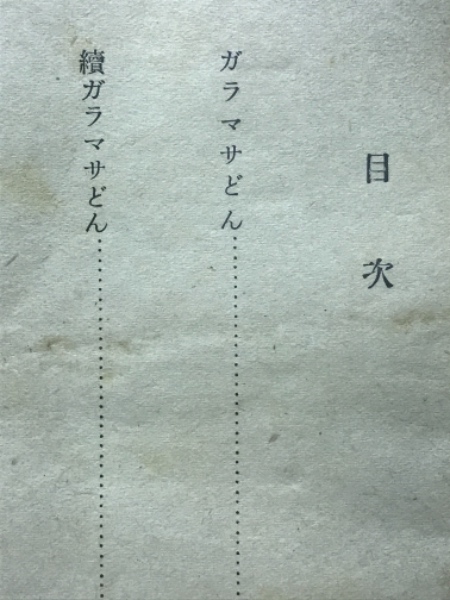 目次
ガラマサどん……………………………………
續ガラマサどん……………………………………